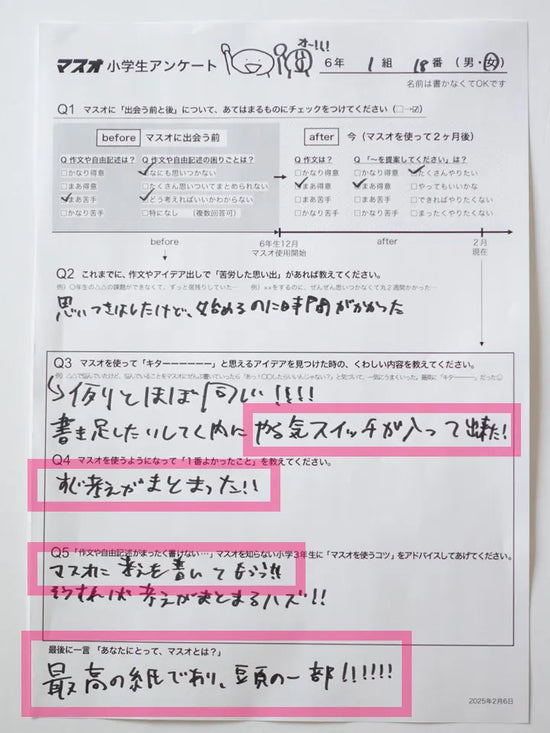 マスオ 小学生アンケート オー!!! 6年 1組 18番 (男・女)
名前は書かなくてOKです
Q1 マスオに「出会う前と後」について、あてはまるものにチェックをつけてください (□→☑)
before マスオに出会う前
after 今 (マスオを使って2ヶ月後)
Q 作文や自由記述は? Q 作文や自由記述の困りごとは? Q 作文は? Q 「〜を提案してください」は?
□かなり得意 ☑なにも思いつかない □かなり得意 □かなり得意 ☑たくさんやりたい
□まあ得意 □たくさん思いついてまとめられない ☑まあ得意 ☑まあ得意 □やってもいいかな
☑まあ苦手 ☑どう考えればいいかわからない □まあ苦手 □まあ苦手 □できればやりたくない
□かなり苦手 □特になし (複数回答可) □かなり苦手 □かなり苦手 □まったくやりたくない
before 6年生12月 after 2月
マスオ使用開始 現在
Q2 これまでに、作文やアイデア出しで「苦労した思い出」があれば教えてください。
例) ○年生の△△の課題ができなくて、ずっと居残りしていた… 例) ××をするのに、ぜんぜん思いつかなくて丸2週間かかった…
思いつきはしたけど、始めるのに時間がかかった
Q3 マスオを使って「キターーーーーー」と思えるアイデアを見つけた時の、くわしい内容を教えてください。
例) △△で悩んでいたけど、悩んでいることをマスオにぜんぶ書いていったら「あっ!○○したらいいんじゃない?」と気づいて、一気にうまくいった。最高に「キターーー」だった
↳例りとほぼ同い!!!!
書き足したいしてく内に やる気スイッチが入って出来た!
Q4 マスオを使うようになって「1番よかったこと」を教えてください。
すぐ考えがまとまった!!
Q5 「作文や自由記述がまったく書けない…」マスオを知らない小学3年生に「マスオを使うコツ」をアドバイスしてあげてください。
マスオに考えを書いてもらう!!
そうすれば考えがまとまるハズ!!
最後に一言 「あなたにとって、マスオとは?」
最高の紙であり、頭の一部!!!!!!
2025年2月6日